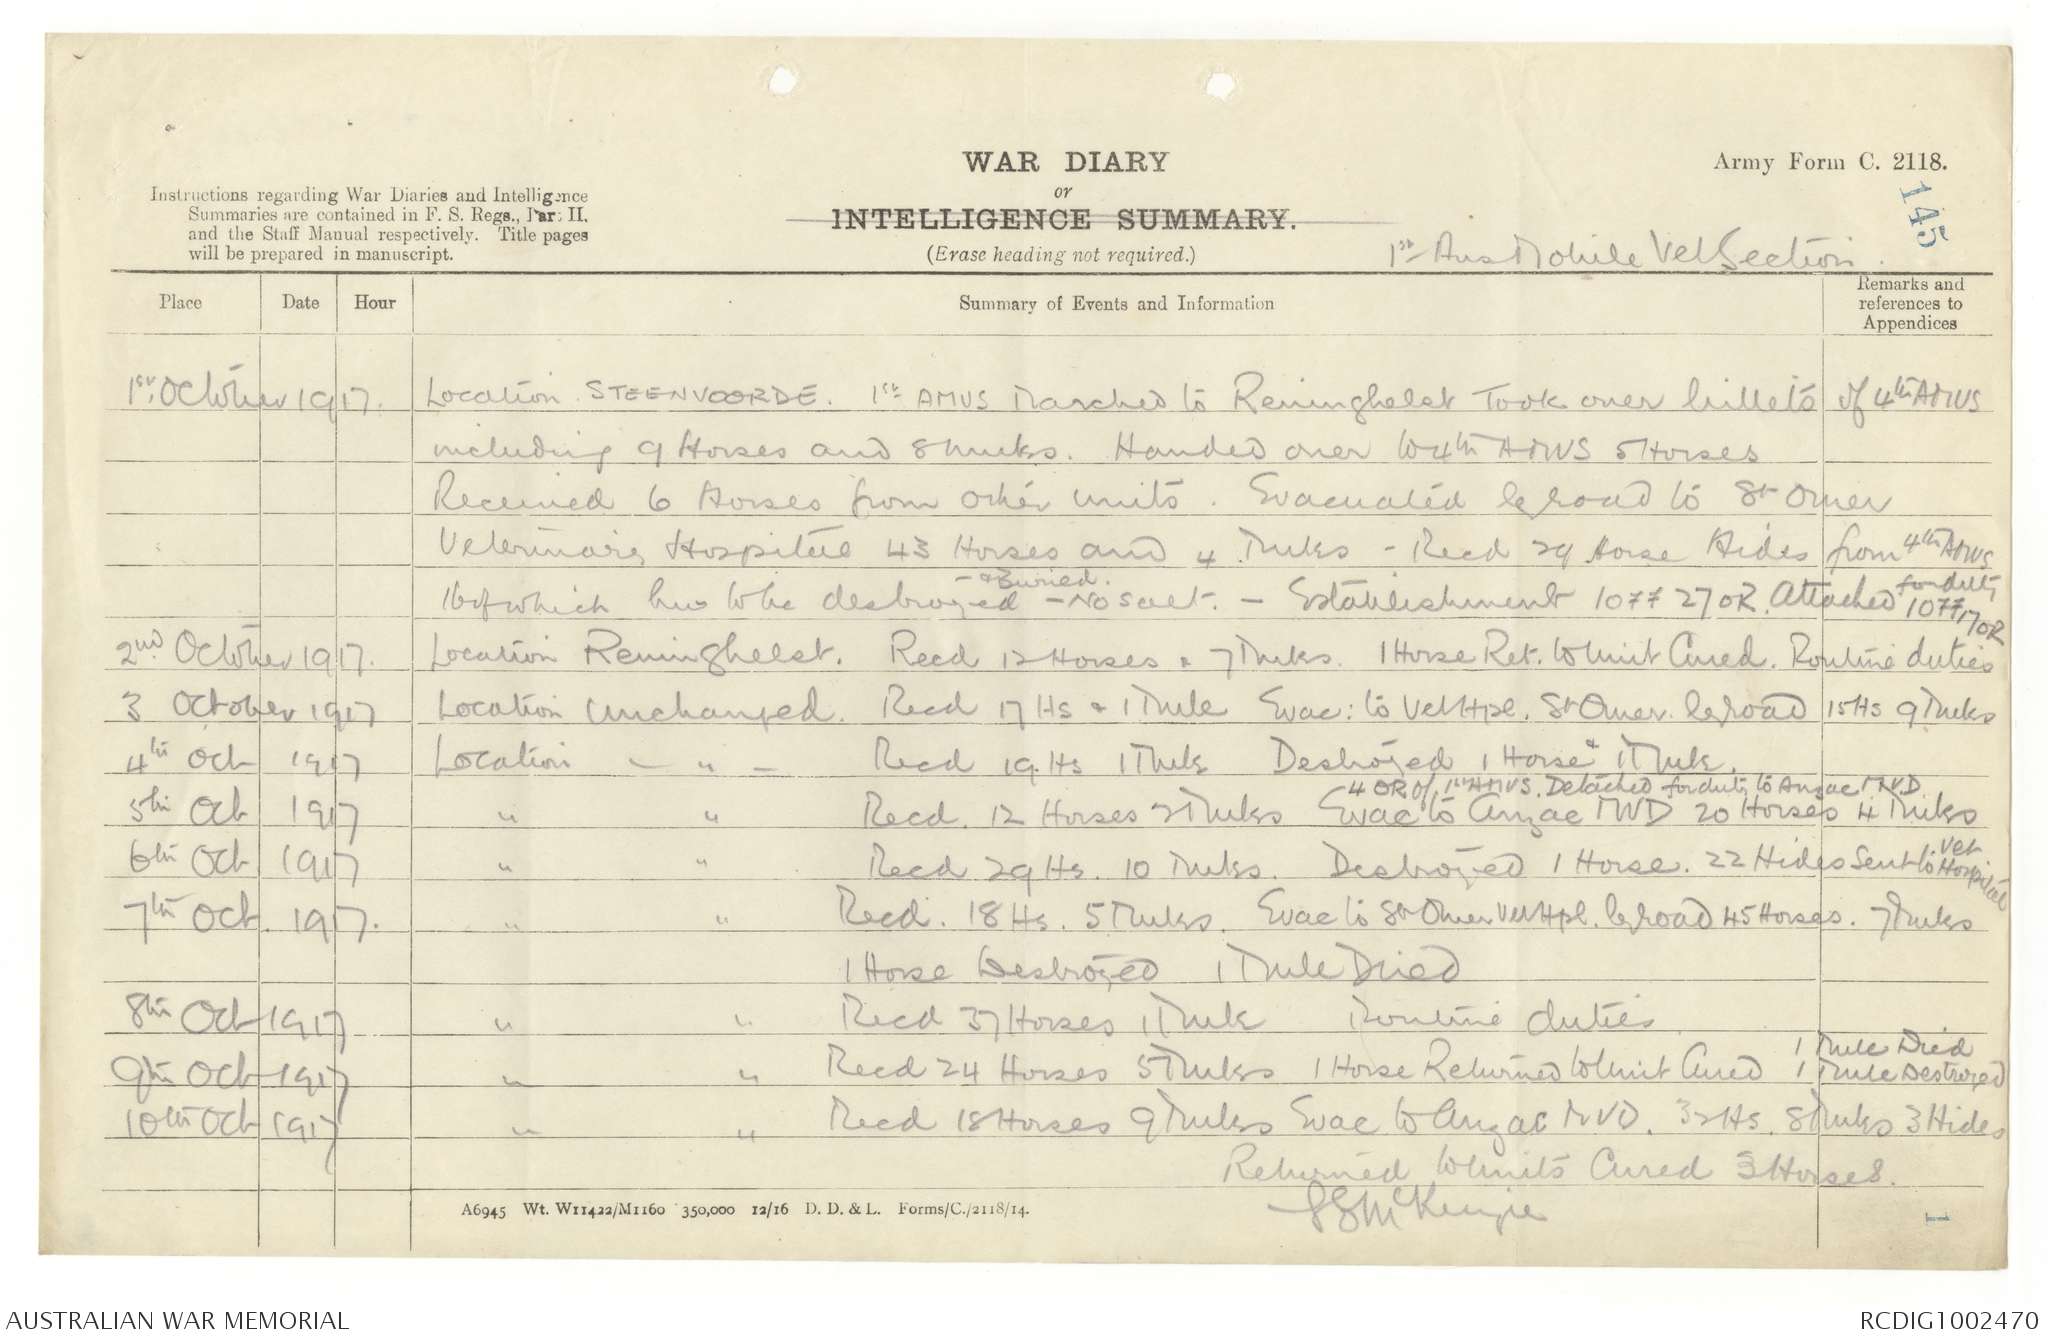 WAR DIARY
or
INTELLIGENCE SUMMARY.
(Erase heading not required.)
Army Form C. 2118.
145
Instructions regarding War Diaries and Intelligence
Summaries are contained in F. S. Regs., Part II.
and the Staff Manual respectively. Title pages
will be prepared in manuscript.
1st Aus Mobile Vet Section.
Place Date Hour Summary of Events and Information Remarks and references to Appendices
1st October 1917. Location. STEENVOORDE. 1st AMVS Marched to Reninghelst Took over billets of 4th AMVS
including 9 Horses and 8 mules. Handed over to 4th AMVS 5 Horses
Received 6 Horses from other units. Evacuated by road to St Omer
Veterinary Hospital 43 Horses and 4 Mules - Recd 29 Horse Hides from 4th AMVS
16 of which had to be destroyed - & Buried. - No Salt. - Establishment 1 Off 27 OR. Attached for duty 1 Off 17 OR
2nd October 1917. Location Reninghelst. Recd 12 Horses & 7 Mules. 1 Horse Ret. to Unit Cured. Routine duties
3 October 1917 Location Unchanged. Recd 17 Hs & 1 Mule Evac: to Vet Hpl. St Omer. by road 15 Hs 9 Mules
4th Oct 1917 Location - " - Recd 19 Hs 1 Mule Destroyed 1 Horse & 1 Mule.
4 OR of 1st AMVS. Detached for duty to Anzac M.V.D
5th Oct 1917 " " Recd. 12 Horses 2 Mules Evac to Anzac MVD 20 Horses 4 Mules
6th Oct 1917 " " Recd 29 Hs. 10 Mules. Destroyed 1 Horse. 22 Hides Sent to Vet Hospital
7th Oct. 1917. " " Recd. 18 Hs. 5 Mules. Evac to St Omer Vet Hpl. by road 45 Horses. 7 Mules
1 Horse Destroyed 1 Mule Died
8th Oct 1917 " " Recd 37 Horses 1 Mule Routine duties
9th Oct 1917 " " Recd 24 Horses 5 Mules 1 Horse Returned to Unit Cured 1 Mule Died 1 Mule Destroyed
10th Oct 1917 " " Recd 18 Horses 9 Mules Evac to Anzac MVD. 32 Hs. 8 Mules 3 Hides
Returned to Units Cured 3 Horses.
McKenzie
A6945 Wt. W11422/M1160 350,000 12/16 D. D. & L. Forms/C./2118/14.
1
AUSTRALIAN WAR MEMORIAL
RCDIG1002470